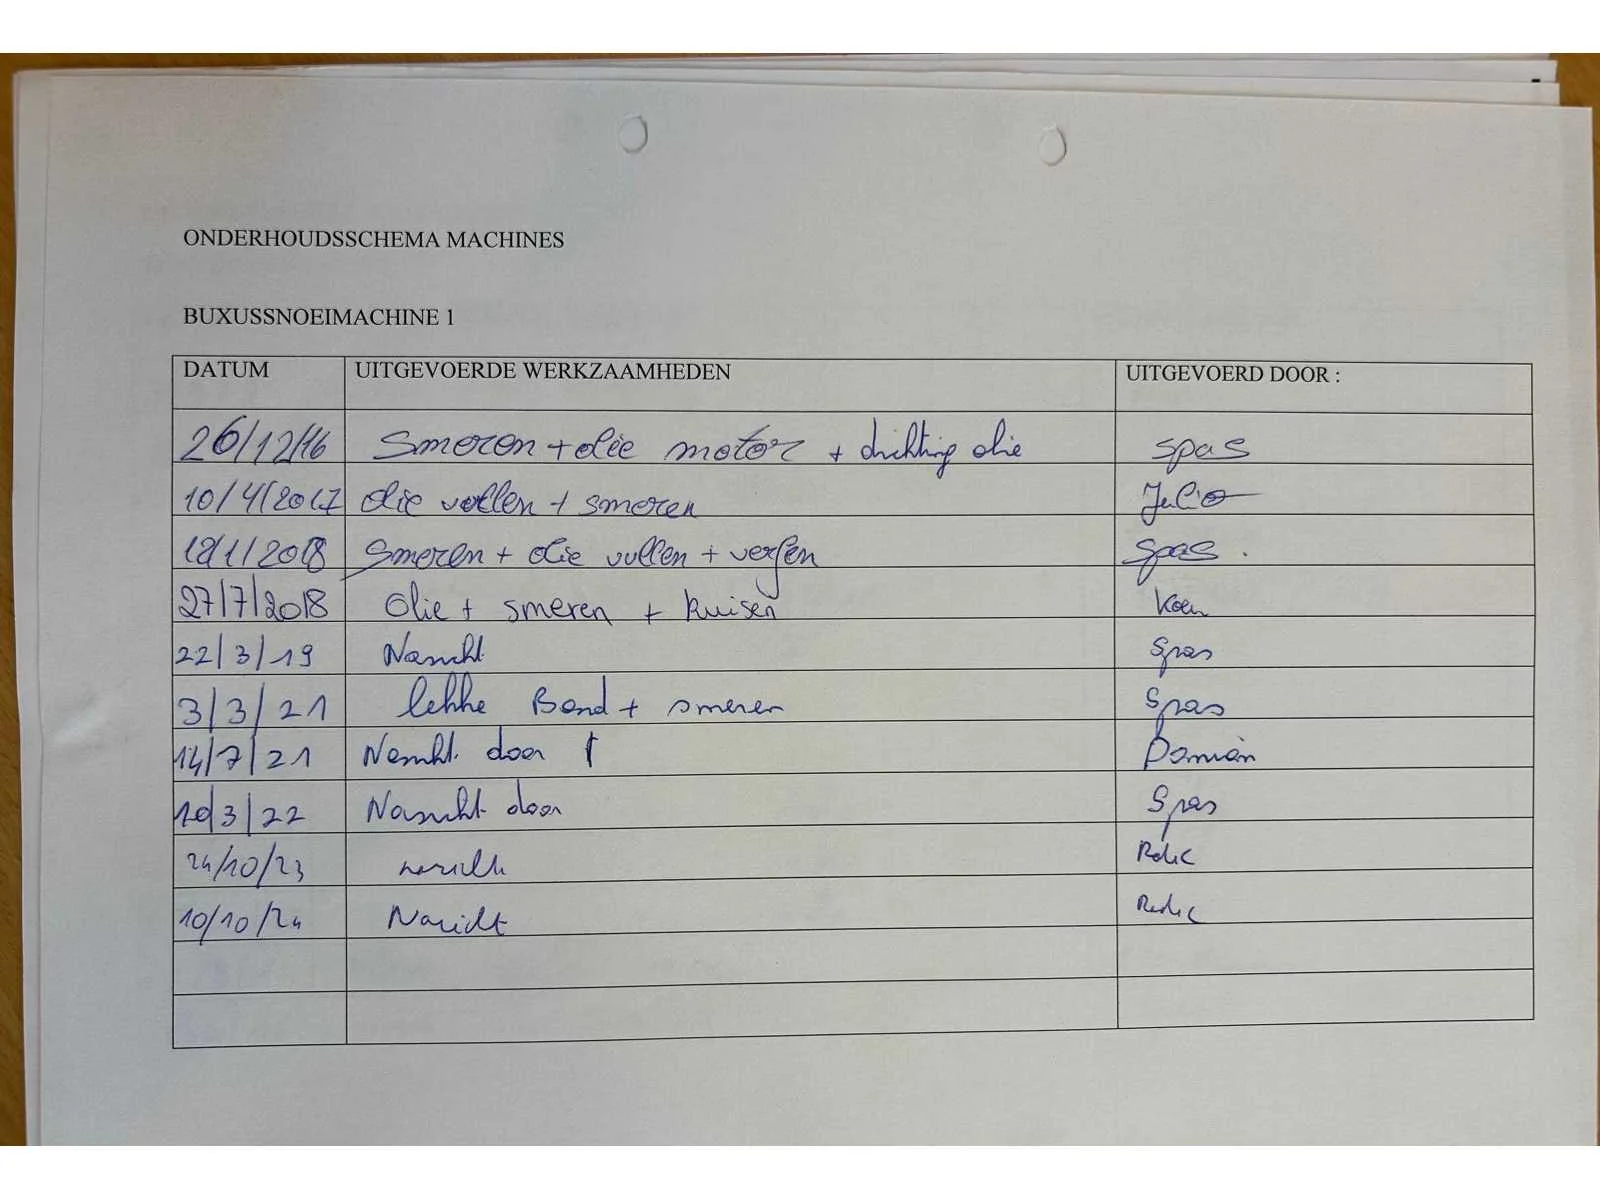 ONDERHOUDSSCHEMA MACHINES
BUXUSSNOEIMACHINE 1
DATUM UITGEVOERDE WERKZAAMHEDEN UITGEVOERD DOOR :
26/12/16 smeren + olie motor + dichting olie spas
10/4/2017 olie vullen + smeren Julio
18/1/2018 smeren + olie vullen + verfen spas.
27/7/2018 Olie + smeren + kuisen Koen
22/3/19 Nazicht Spas
3/3/21 lekke Band + smeren Spas
14/7/21 Nazicht door Damian
10/3/22 Nazicht door Spas
24/10/23 nazicht
10/10/24 Nazicht